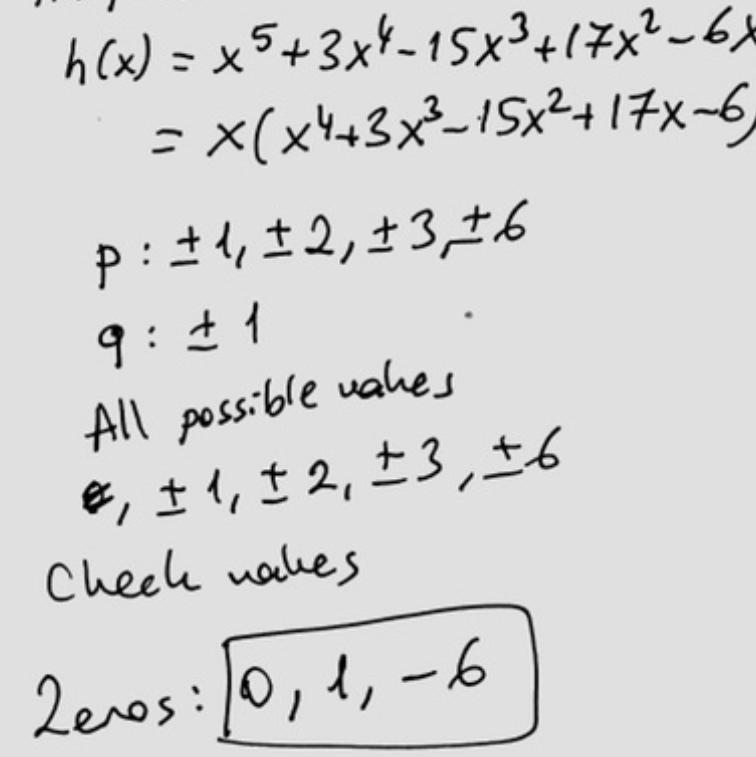 h(x) = x⁵+3x⁴-15x³+17x²-6x
= x(x⁴+3x³-15x²+17x-6)
p: ±1, ±2, ±3, ±6
q: ±1
All possible values
, ±1, ±2, ±3, ±6
Check values
Zeros: 0, 1, -6